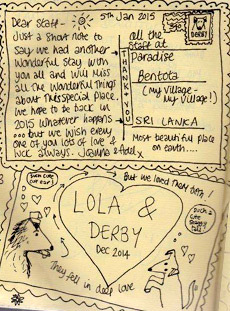 Dear Staff -
5th Jan 2015
Just a short note to
say we had another
wonderful stay with
you all and will miss
all the wonderful things
about this special place.
We hope to be back in
2015 whatever happens
... but we wish every
one of you lots of love &
luck always. Joanna & Fidel x
THANK YOU
DERBY
all the
staff at
Paradise
Bentota
(my village -
my village!)
SRI LANKA
Most beautiful place
on earth....
but we loved them both!
LOLA &
DERBY
Dec 2014
Such a
cute
They fell in deep love